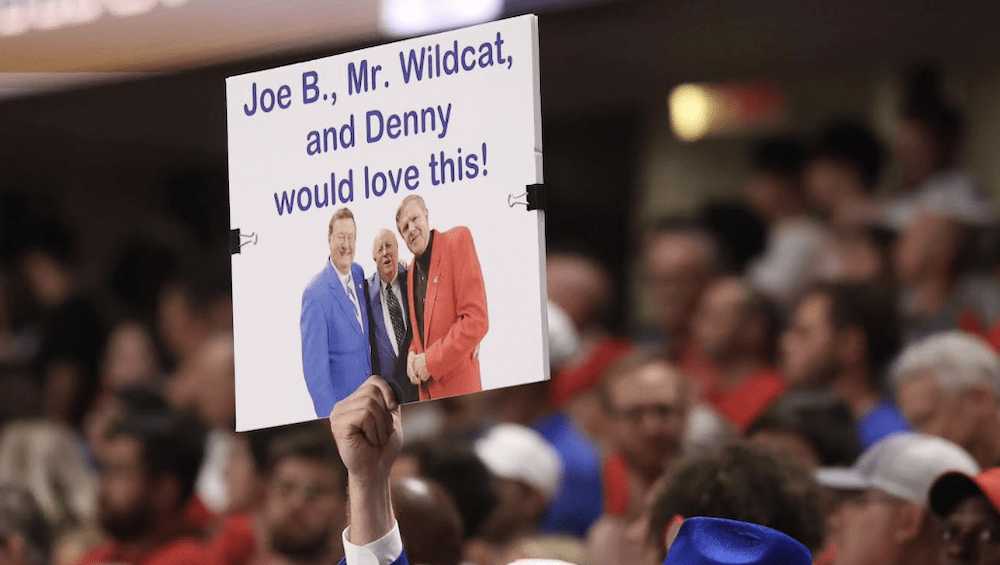 Joe B., Mr. Wildcat,
and Denny
would love this!